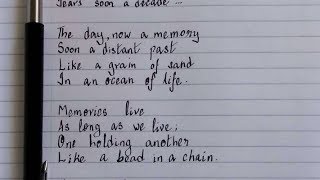 Years soon a decade ...
The day, now a memory
Soon a distant past
Like a grain of sand
In an ocean of life.
Memories live
As long as we live;
One holding another
Like a bead in a chain.